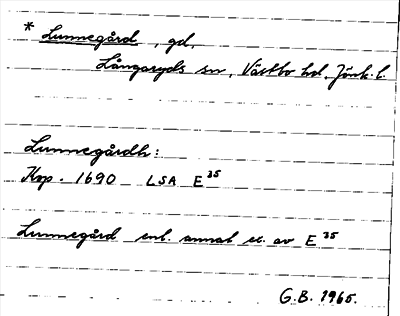 * Lunnegård, gd,
Långaryds sn, Västbo hd, Jönk. l.
Lunnegårdh:
Kop. 1690 LSA E 35
Lunnegård enl. annat ex. av E 35
G.B. 1965.